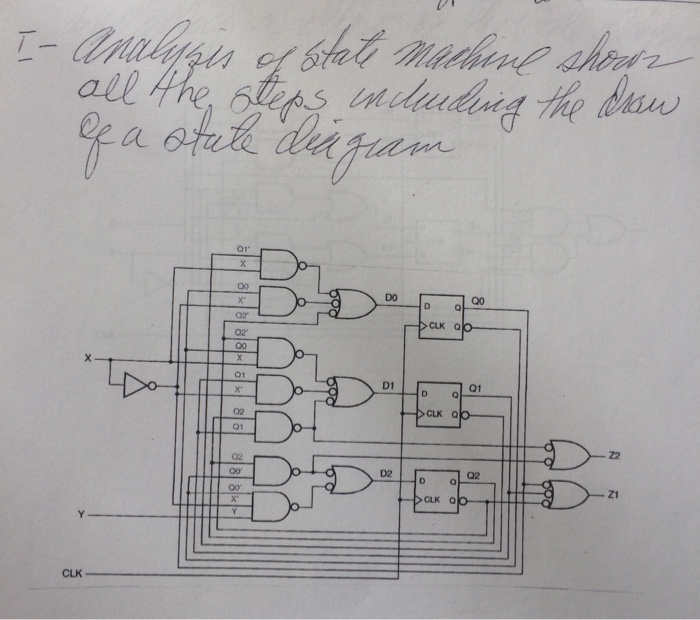 I- analysis of state machine shows
all the steps including the draw
of a state diagram
Q1'
X
Q0
X'
Q2'
D0
D Q
CLK Q
Q0
Q2'
Q0
X
X
Q1
X'
D1
D Q
CLK Q
Q1
Q2
Q1
Q2
Q0'
D2
D Q
CLK Q
Q2
Z2
Q0'
X'
Y
Z1
Y
CLK